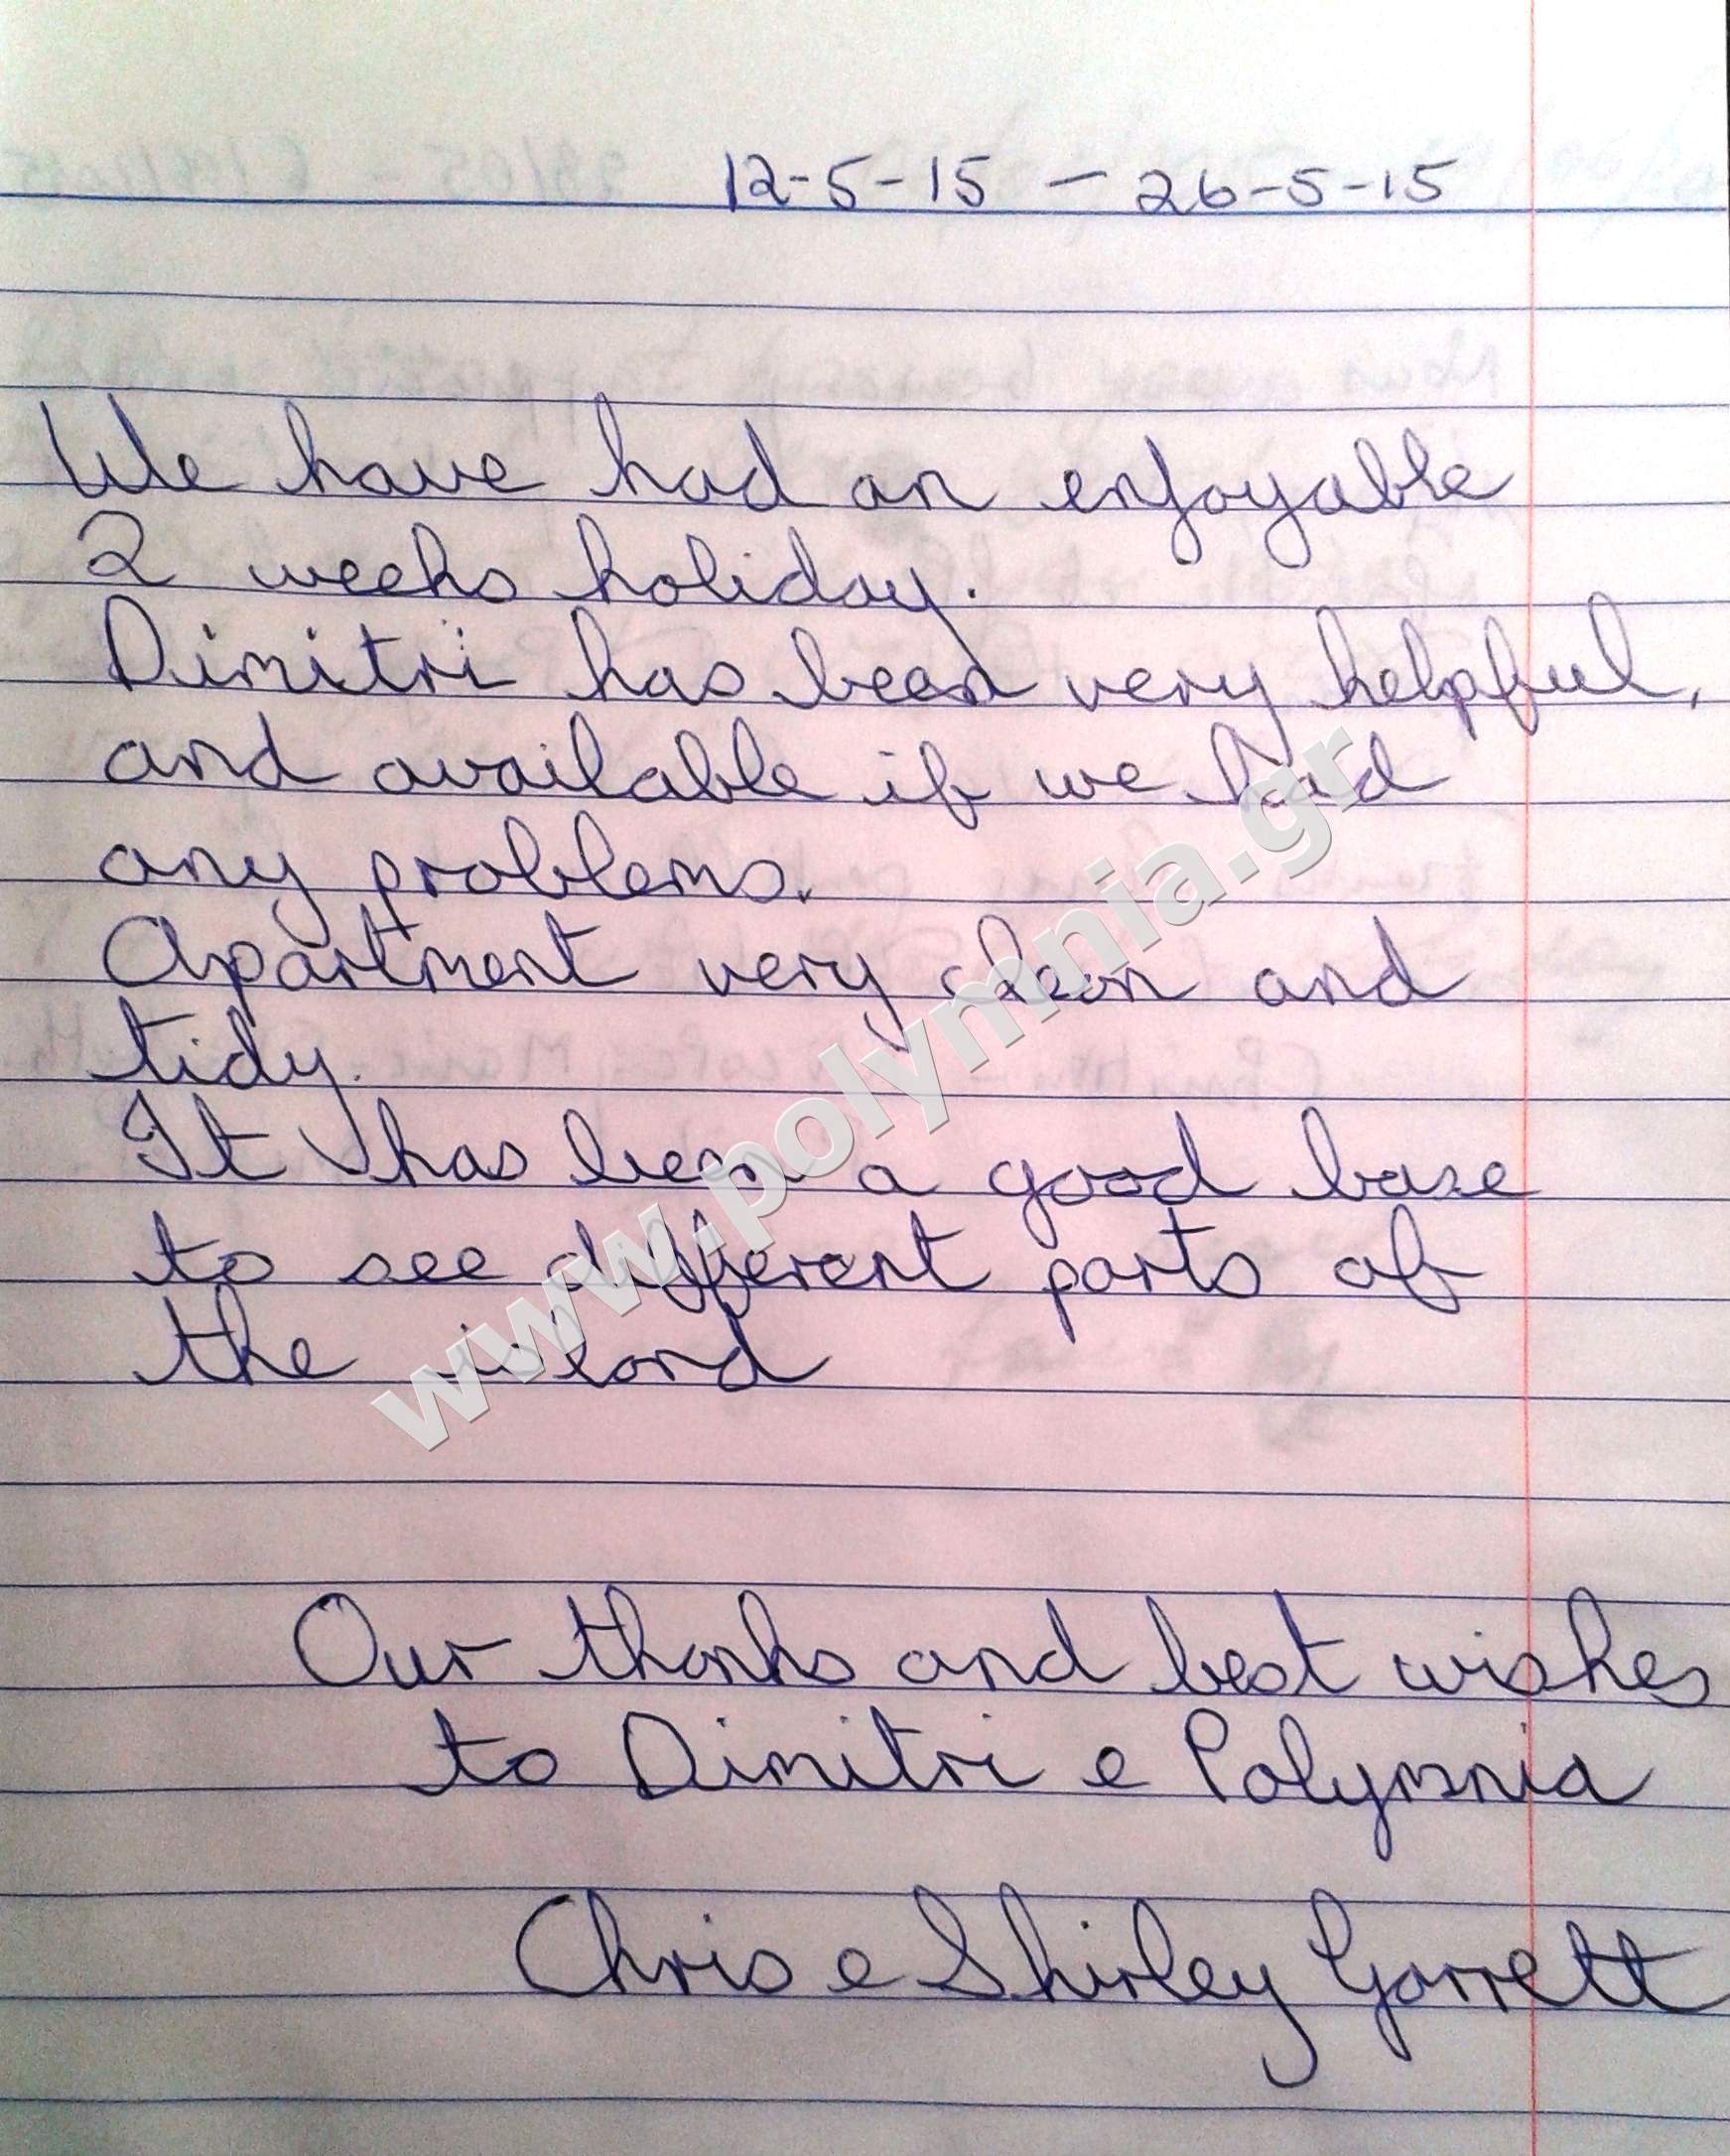 12-5-15 - 26-5-15
We have had an enjoyable
2 weeks holiday.
Dimitri has been very helpful,
and available if we had
any problems.
Apartment very clean and
tidy.
It has been a good base
to see different parts of
the island
Our thanks and best wishes
to Dimitri e Polymnia
Chris e Shirley Garrett
www.polymnia.gr